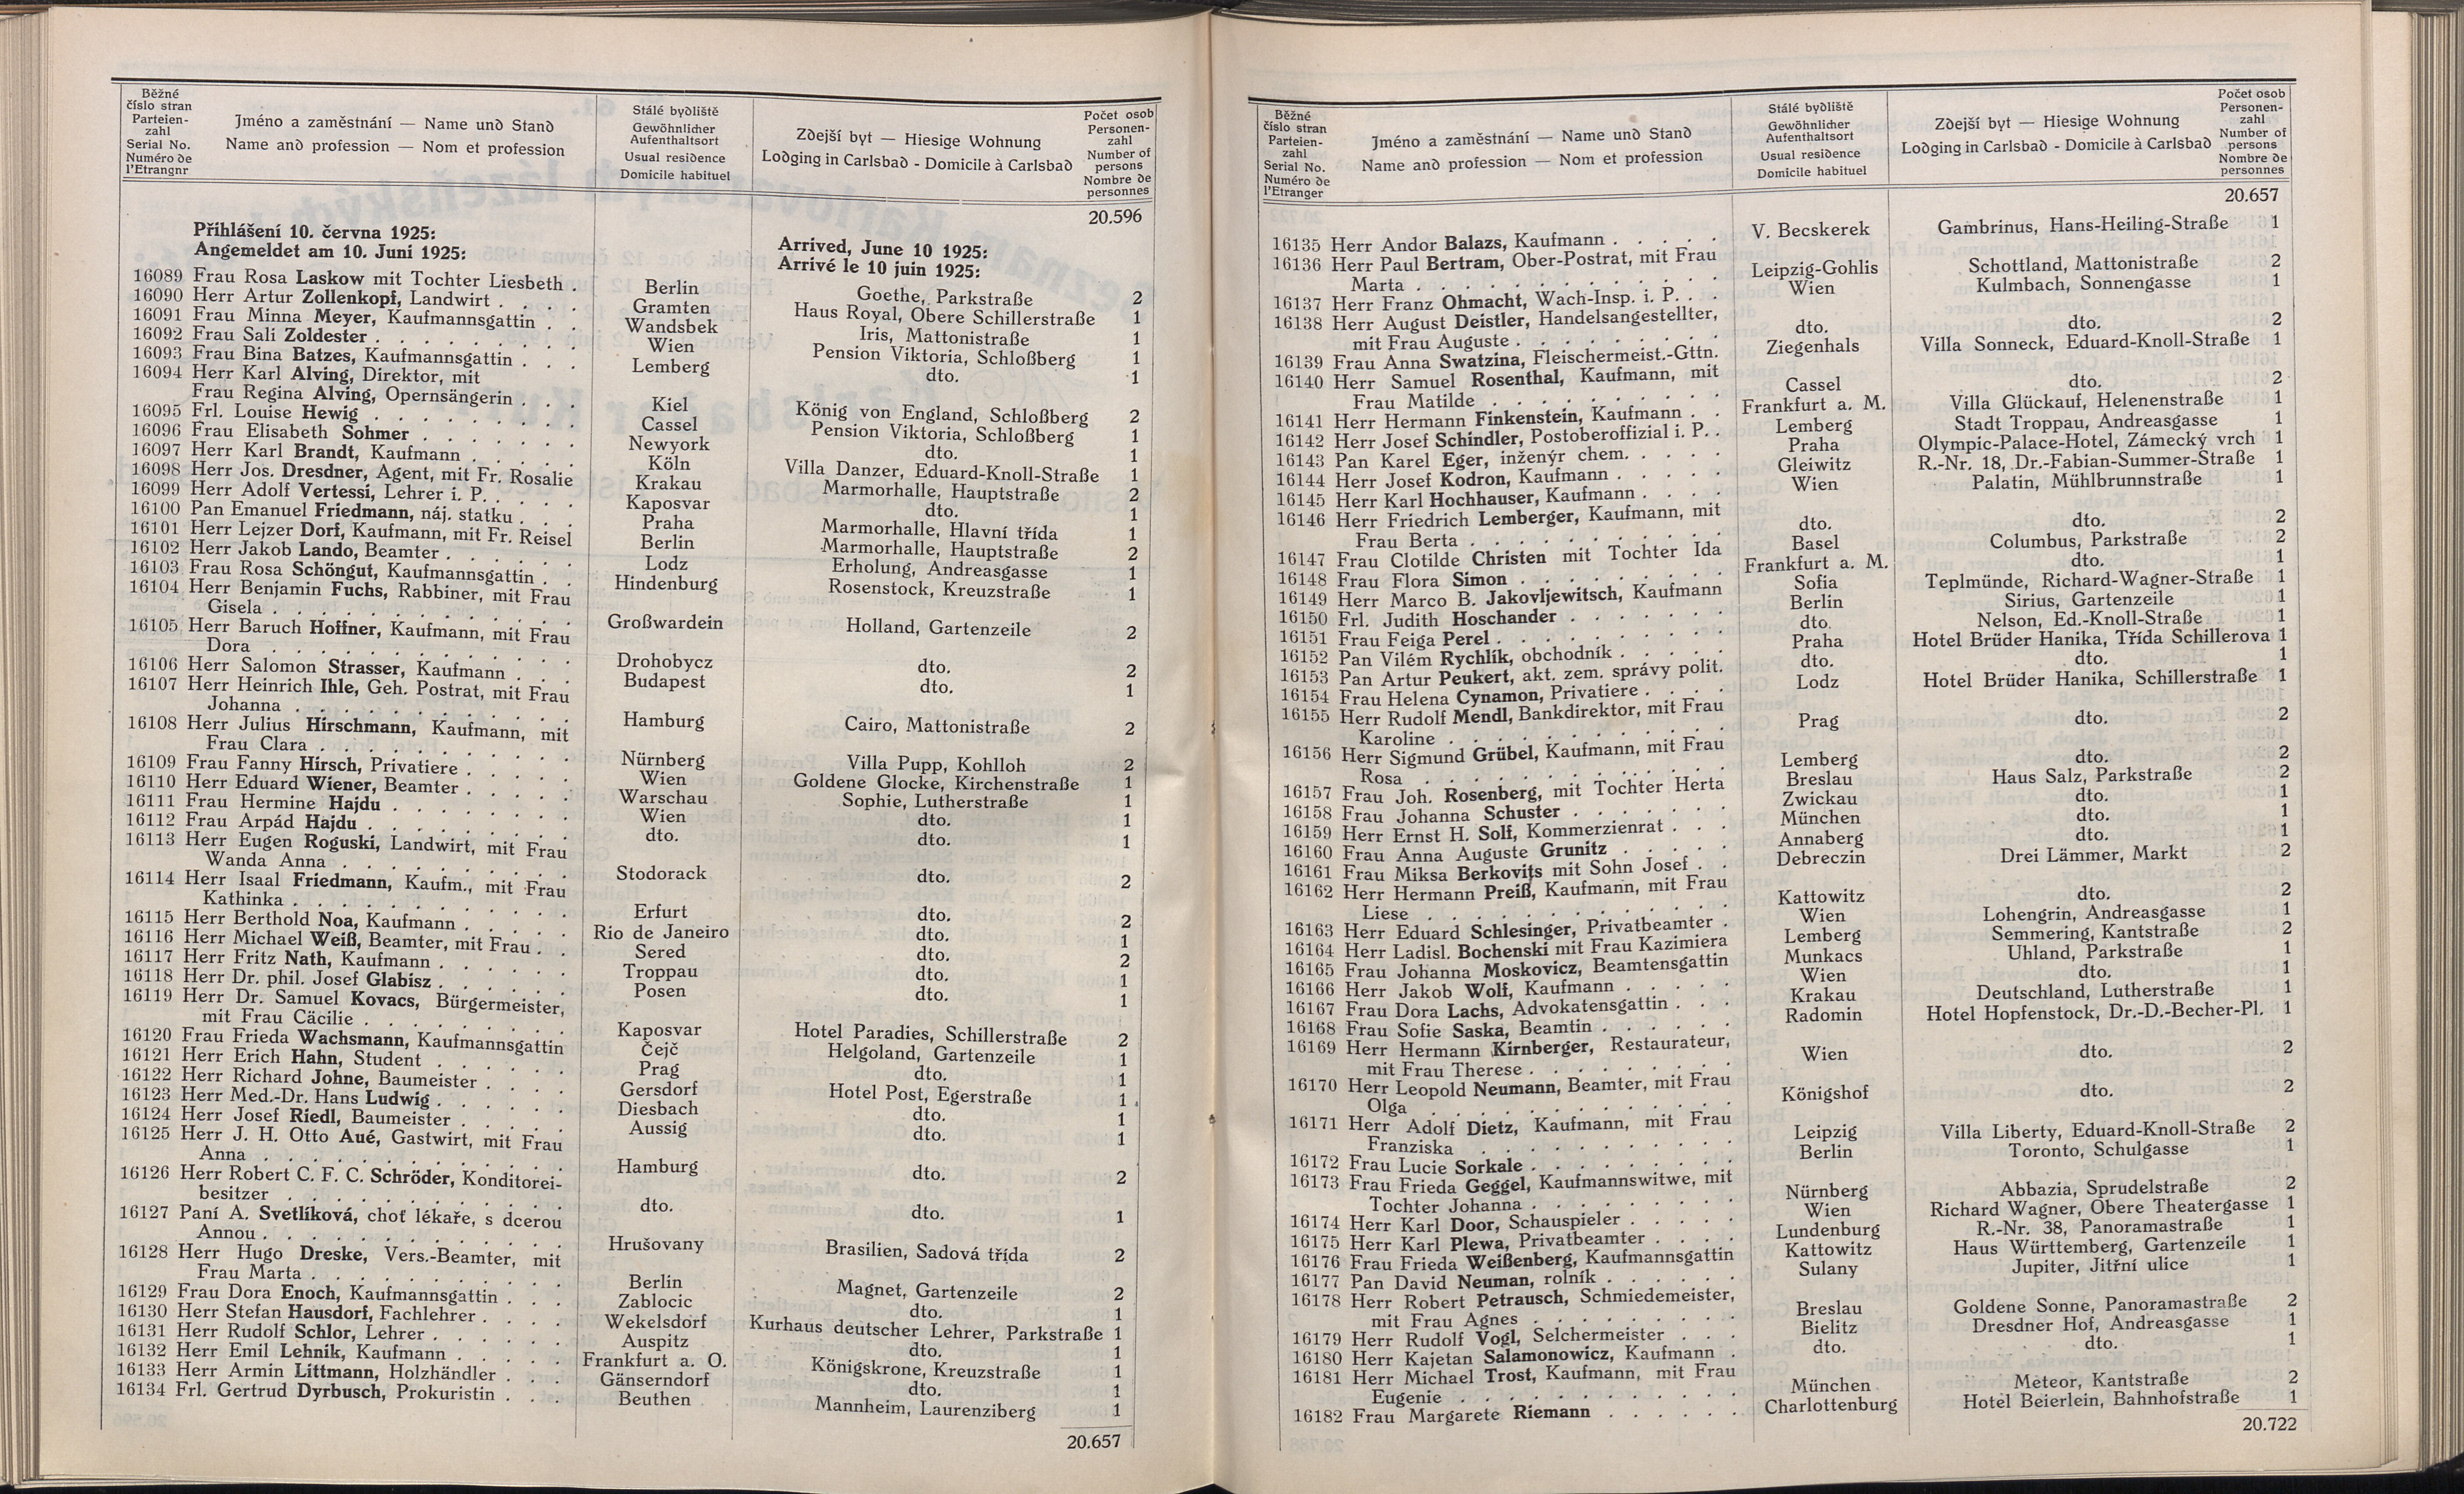 Běžné
číslo stran
Parteien-
zahl
Serial No.
Numéro de
l'Etrangnr
Jméno a zaměstnání — Name und Stand
Name and profession — Nom et profession
Stálé bydliště
Gewöhnlicher
Aufenthaltsort
Usual residence
Domicile habituel
Zdejší byt — Hiesige Wohnung
Lodging in Carlsbad - Domicile à Carlsbad
Počet osob
Personen-
zahl
Number of
persons
Nombre de
personnes
20.596
Přihlášení 10. června 1925:
Angemeldet am 10. Juni 1925:
Arrived, June 10 1925:
Arrivé le 10 juin 1925:
16089 Frau Rosa Laskow mit Tochter Liesbeth . Berlin Goethe, Parkstraße 2
16090 Herr Artur Zollenkopf, Landwirt . . . . Gramten Haus Royal, Obere Schillerstraße 1
16091 Frau Minna Meyer, Kaufmannsgattin . . Wandsbek Iris, Mattonistraße 1
16092 Frau Sali Zoldester . . . . . . . . . Wien Pension Viktoria, Schloßberg 1
16093 Frau Bina Batzes, Kaufmannsgattin . . . Lemberg dto. 1
16094 Herr Karl Alving, Direktor, mit
Frau Regina Alving, Opernsängerin . . . Kiel König von England, Schloßberg 2
16095 Frl. Louise Hewig . . . . . . . . . Cassel Pension Viktoria, Schloßberg 1
16096 Frau Elisabeth Sohmer . . . . . . . Newyork dto. 1
16097 Herr Karl Brandt, Kaufmann . . . . . Köln Villa Danzer, Eduard-Knoll-Straße 1
16098 Herr Jos. Dresdner, Agent, mit Fr. Rosalie Krakau Marmorhalle, Hauptstraße 2
16099 Herr Adolf Vertessi, Lehrer i. P. . . . . Kaposvar dto. 1
16100 Pan Emanuel Friedmann, náj. statku . . . Praha Marmorhalle, Hlavní třída 1
16101 Herr Lejzer Dorf, Kaufmann, mit Fr. Reisel Berlin Marmorhalle, Hauptstraße 2
16102 Herr Jakob Lando, Beamter . . . . . . Lodz Erholung, Andreasgasse 1
16103 Frau Rosa Schöngut, Kaufmannsgattin . . Hindenburg Rosenstock, Kreuzstraße 1
16104 Herr Benjamin Fuchs, Rabbiner, mit Frau
Gisela . . . . . . . . . . . . . Großwardein Holland, Gartenzeile 2
16105 Herr Baruch Hoffner, Kaufmann, mit Frau
Dora . . . . . . . . . . . . . Drohobycz dto. 2
16106 Herr Salomon Strasser, Kaufmann . . . . Budapest dto. 1
16107 Herr Heinrich Ihle, Geh. Postrat, mit Frau
Johanna . . . . . . . . . . . . Hamburg Cairo, Mattonistraße 2
16108 Herr Julius Hirschmann, Kaufmann, mit
Frau Clara . . . . . . . . . . . Nürnberg Villa Pupp, Kohlloh 2
16109 Frau Fanny Hirsch, Privatiere . . . . . Wien Goldene Glocke, Kirchenstraße 1
16110 Herr Eduard Wiener, Beamter . . . . . Warschau Sophie, Lutherstraße 1
16111 Frau Hermine Hajdu . . . . . . . . Wien dto. 1
16112 Frau Arpád Hajdu . . . . . . . . . dto. dto. 1
16113 Herr Eugen Roguski, Landwirt, mit Frau
Wanda Anna . . . . . . . . . . Stodorack dto. 2
16114 Herr Isaal Friedmann, Kaufm., mit Frau
Kathinka . . . . . . . . . . . . Erfurt dto. 2
16115 Herr Berthold Noa, Kaufmann . . . . . Rio de Janeiro dto. 1
16116 Herr Michael Weiß, Beamter, mit Frau . . Sered dto. 2
16117 Herr Fritz Nath, Kaufmann . . . . . . Troppau dto. 1
16118 Herr Dr. phil. Josef Glabisz . . . . . . Posen dto. 1
16119 Herr Dr. Samuel Kovacs, Bürgermeister,
mit Frau Cäcilie . . . . . . . . . Kaposvar Hotel Paradies, Schillerstraße 2
16120 Frau Frieda Wachsmann, Kaufmannsgattin Čejč Helgoland, Gartenzeile 1
16121 Herr Erich Hahn, Student . . . . . . Prag dto. 1
16122 Herr Richard Johne, Baumeister . . . . Gersdorf Hotel Post, Egerstraße 1
16123 Herr Med.-Dr. Hans Ludwig . . . . . . Diesbach dto. 1
16124 Herr Josef Riedl, Baumeister . . . . . Aussig dto. 1
16125 Herr J. H. Otto Aué, Gastwirt, mit Frau
Anna . . . . . . . . . . . . . Hamburg dto. 2
16126 Herr Robert C. F. C. Schröder, Konditorei-
besitzer . . . . . . . . . . . . dto. dto. 1
16127 Paní A. Svetlíková, choť lékaře, s dcerou
Annou . . . . . . . . . . . . . Hrušovany Brasilien, Sadová třída 2
16128 Herr Hugo Dreske, Vers.-Beamter, mit
Frau Marta . . . . . . . . . . . Berlin Magnet, Gartenzeile 2
16129 Frau Dora Enoch, Kaufmannsgattin . . . Zablocic dto. 1
16130 Herr Stefan Hausdorf, Fachlehrer . . . . Wekelsdorf Kurhaus deutscher Lehrer, Parkstraße 1
16131 Herr Rudolf Schlor, Lehrer . . . . . . Auspitz dto. 1
16132 Herr Emil Lehnik, Kaufmann . . . . . Frankfurt a. O. Königskrone, Kreuzstraße 1
16133 Herr Armin Littmann, Holzhändler . . . Gänserndorf dto. 1
16134 Frl. Gertrud Dyrbusch, Prokuristin . . . Beuthen Mannheim, Laurenziberg 1
20.657
Běžné
číslo stran
Parteien-
zahl
Serial No.
Numéro de
l'Etranger
Jméno a zaměstnání — Name und Stand
Name and profession — Nom et profession
Stálé bydliště
Gewöhnlicher
Aufenthaltsort
Usual residence
Domicile habituel
Zdejší byt — Hiesige Wohnung
Lodging in Carlsbad - Domicile à Carlsbad
Počet osob
Personen-
zahl
Number of
persons
Nombre de
personnes
20.657
16135 Herr Andor Balazs, Kaufmann . . . . . V. Becskerek Gambrinus, Hans-Heiling-Straße 1
16136 Herr Paul Bertram, Ober-Postrat, mit Frau
Marta . . . . . . . . . . . . . Leipzig-Gohlis Schottland, Mattonistraße 2
16137 Herr Franz Ohmacht, Wach-Insp. i. P. . . Wien Kulmbach, Sonnengasse 1
16138 Herr August Deistler, Handelsangestellter,
mit Frau Auguste . . . . . . . . . dto. dto. 2
16139 Frau Anna Swatzina, Fleischermeist.-Gttn. Ziegenhals Villa Sonneck, Eduard-Knoll-Straße 1
16140 Herr Samuel Rosenthal, Kaufmann, mit
Frau Matilde . . . . . . . . . . Cassel dto. 2
16141 Herr Hermann Finkenstein, Kaufmann . . Frankfurt a. M. Villa Glückauf, Helenenstraße 1
16142 Herr Josef Schindler, Postoberoffizial i. P. . Lemberg Stadt Troppau, Andreasgasse 1
16143 Pan Karel Eger, inženýr chem. . . . . Praha Olympic-Palace-Hotel, Zámecký vrch 1
16144 Herr Josef Kodron, Kaufmann . . . . . Gleiwitz R.-Nr. 18, Dr.-Fabian-Summer-Straße 1
16145 Herr Karl Hochhauser, Kaufmann . . . . Wien Palatin, Mühlbrunnstraße 1
16146 Herr Friedrich Lemberger, Kaufmann, mit
Frau Berta . . . . . . . . . . . dto. dto. 2
16147 Frau Clotilde Christen mit Tochter Ida Basel Columbus, Parkstraße 2
16148 Frau Flora Simon . . . . . . . . . Frankfurt a. M. dto. 1
16149 Herr Marco B. Jakovljewitsch, Kaufmann Sofia Teplmünde, Richard-Wagner-Straße 1
16150 Frl. Judith Hoschander . . . . . . . Berlin Sirius, Gartenzeile 1
16151 Frau Feiga Perel . . . . . . . . . . dto. Nelson, Ed.-Knoll-Straße 1
16152 Pan Vilém Rychlík, obchodník . . . . . Praha Hotel Brüder Hanika, Třída Schillerova 1
16153 Pan Artur Peukert, akt. zem. správy polit. dto. dto. 1
16154 Frau Helena Cynamon, Privatiere . . . . Lodz Hotel Brüder Hanika, Schillerstraße 1
16155 Herr Rudolf Mendl, Bankdirektor, mit Frau
Karoline . . . . . . . . . . . . Prag dto. 2
16156 Herr Sigmund Grübel, Kaufmann, mit Frau
Rosa . . . . . . . . . . . . . Lemberg dto. 2
16157 Frau Joh. Rosenberg, mit Tochter Herta Breslau Haus Salz, Parkstraße 2
16158 Frau Johanna Schuster . . . . . . . Zwickau dto. 1
16159 Herr Ernst H. Solf, Kommerzienrat . . . München dto. 1
16160 Frau Anna Auguste Grunitz . . . . . Annaberg dto. 1
16161 Frau Miksa Berkovits mit Sohn Josef . . Debreczin Drei Lämmer, Markt 2
16162 Herr Hermann Preiß, Kaufmann, mit Frau
Liese . . . . . . . . . . . . . Kattowitz dto. 2
16163 Herr Eduard Schlesinger, Privatbeamter . Wien Lohengrin, Andreasgasse 1
16164 Herr Ladisl. Bochenski mit Frau Kazimiera Lemberg Semmering, Kantstraße 2
16165 Frau Johanna Moskovicz, Beamtensgattin Munkacs Uhland, Parkstraße 1
16166 Herr Jakob Wolf, Kaufmann . . . . . Wien dto. 1
16167 Frau Dora Lachs, Advokatensgattin . . . Krakau Deutschland, Lutherstraße 1
16168 Frau Sofie Saska, Beamtin . . . . . . Radomin Hotel Hopfenstock, Dr.-D.-Becher-Pl. 1
16169 Herr Hermann Kirnberger, Restaurateur,
mit Frau Therese . . . . . . . . . Wien dto. 2
16170 Herr Leopold Neumann, Beamter, mit Frau
Olga . . . . . . . . . . . . . Königshof dto. 2
16171 Herr Adolf Dietz, Kaufmann, mit Frau
Franziska . . . . . . . . . . . Leipzig Villa Liberty, Eduard-Knoll-Straße 2
16172 Frau Lucie Sorkale . . . . . . . . . Berlin Toronto, Schulgasse 1
16173 Frau Frieda Geggel, Kaufmannswitwe, mit
Tochter Johanna . . . . . . . . . Nürnberg Abbazia, Sprudelstraße 2
16174 Herr Karl Door, Schauspieler . . . . . Wien Richard Wagner, Obere Theatergasse 1
16175 Herr Karl Plewa, Privatbeamter . . . . Lundenburg R.-Nr. 38, Panoramastraße 1
16176 Frau Frieda Weißenberg, Kaufmannsgattin Kattowitz Haus Württemberg, Gartenzeile 1
16177 Pan David Neuman, rolník . . . . . . Sulany Jupiter, Jitřní ulice 1
16178 Herr Robert Petrausch, Schmiedemeister,
mit Frau Agnes . . . . . . . . . Breslau Goldene Sonne, Panoramastraße 2
16179 Herr Rudolf Vogl, Selchermeister . . . Bielitz Dresdner Hof, Andreasgasse 1
16180 Herr Kajetan Salamonowicz, Kaufmann . dto. dto. 1
16181 Herr Michael Trost, Kaufmann, mit Frau
Eugenie . . . . . . . . . . . . München Meteor, Kantstraße 2
16182 Frau Margarete Riemann . . . . . . Charlottenburg Hotel Beierlein, Bahnhofstraße 1
20.722